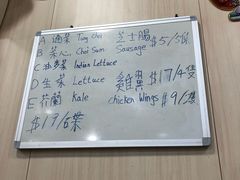 A 通菜 Tung Choi
B 菜心 Choi Sum
C 油麥菜 Indian Lettuce
D 生菜 Lettuce
E 芥蘭 Kale
$17/碟
芝士腸
Sausage $5/
雞翼 $17/4隻
Chicken Wings $9/2隻